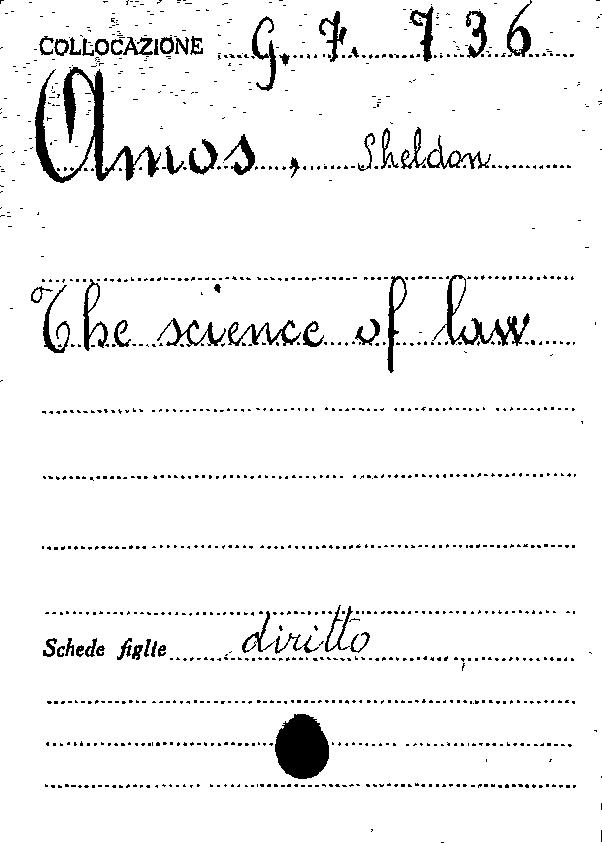 COLLOCAZIONE G. 7. 736
Amos, Sheldon
The science of law
Schede figlie diritto